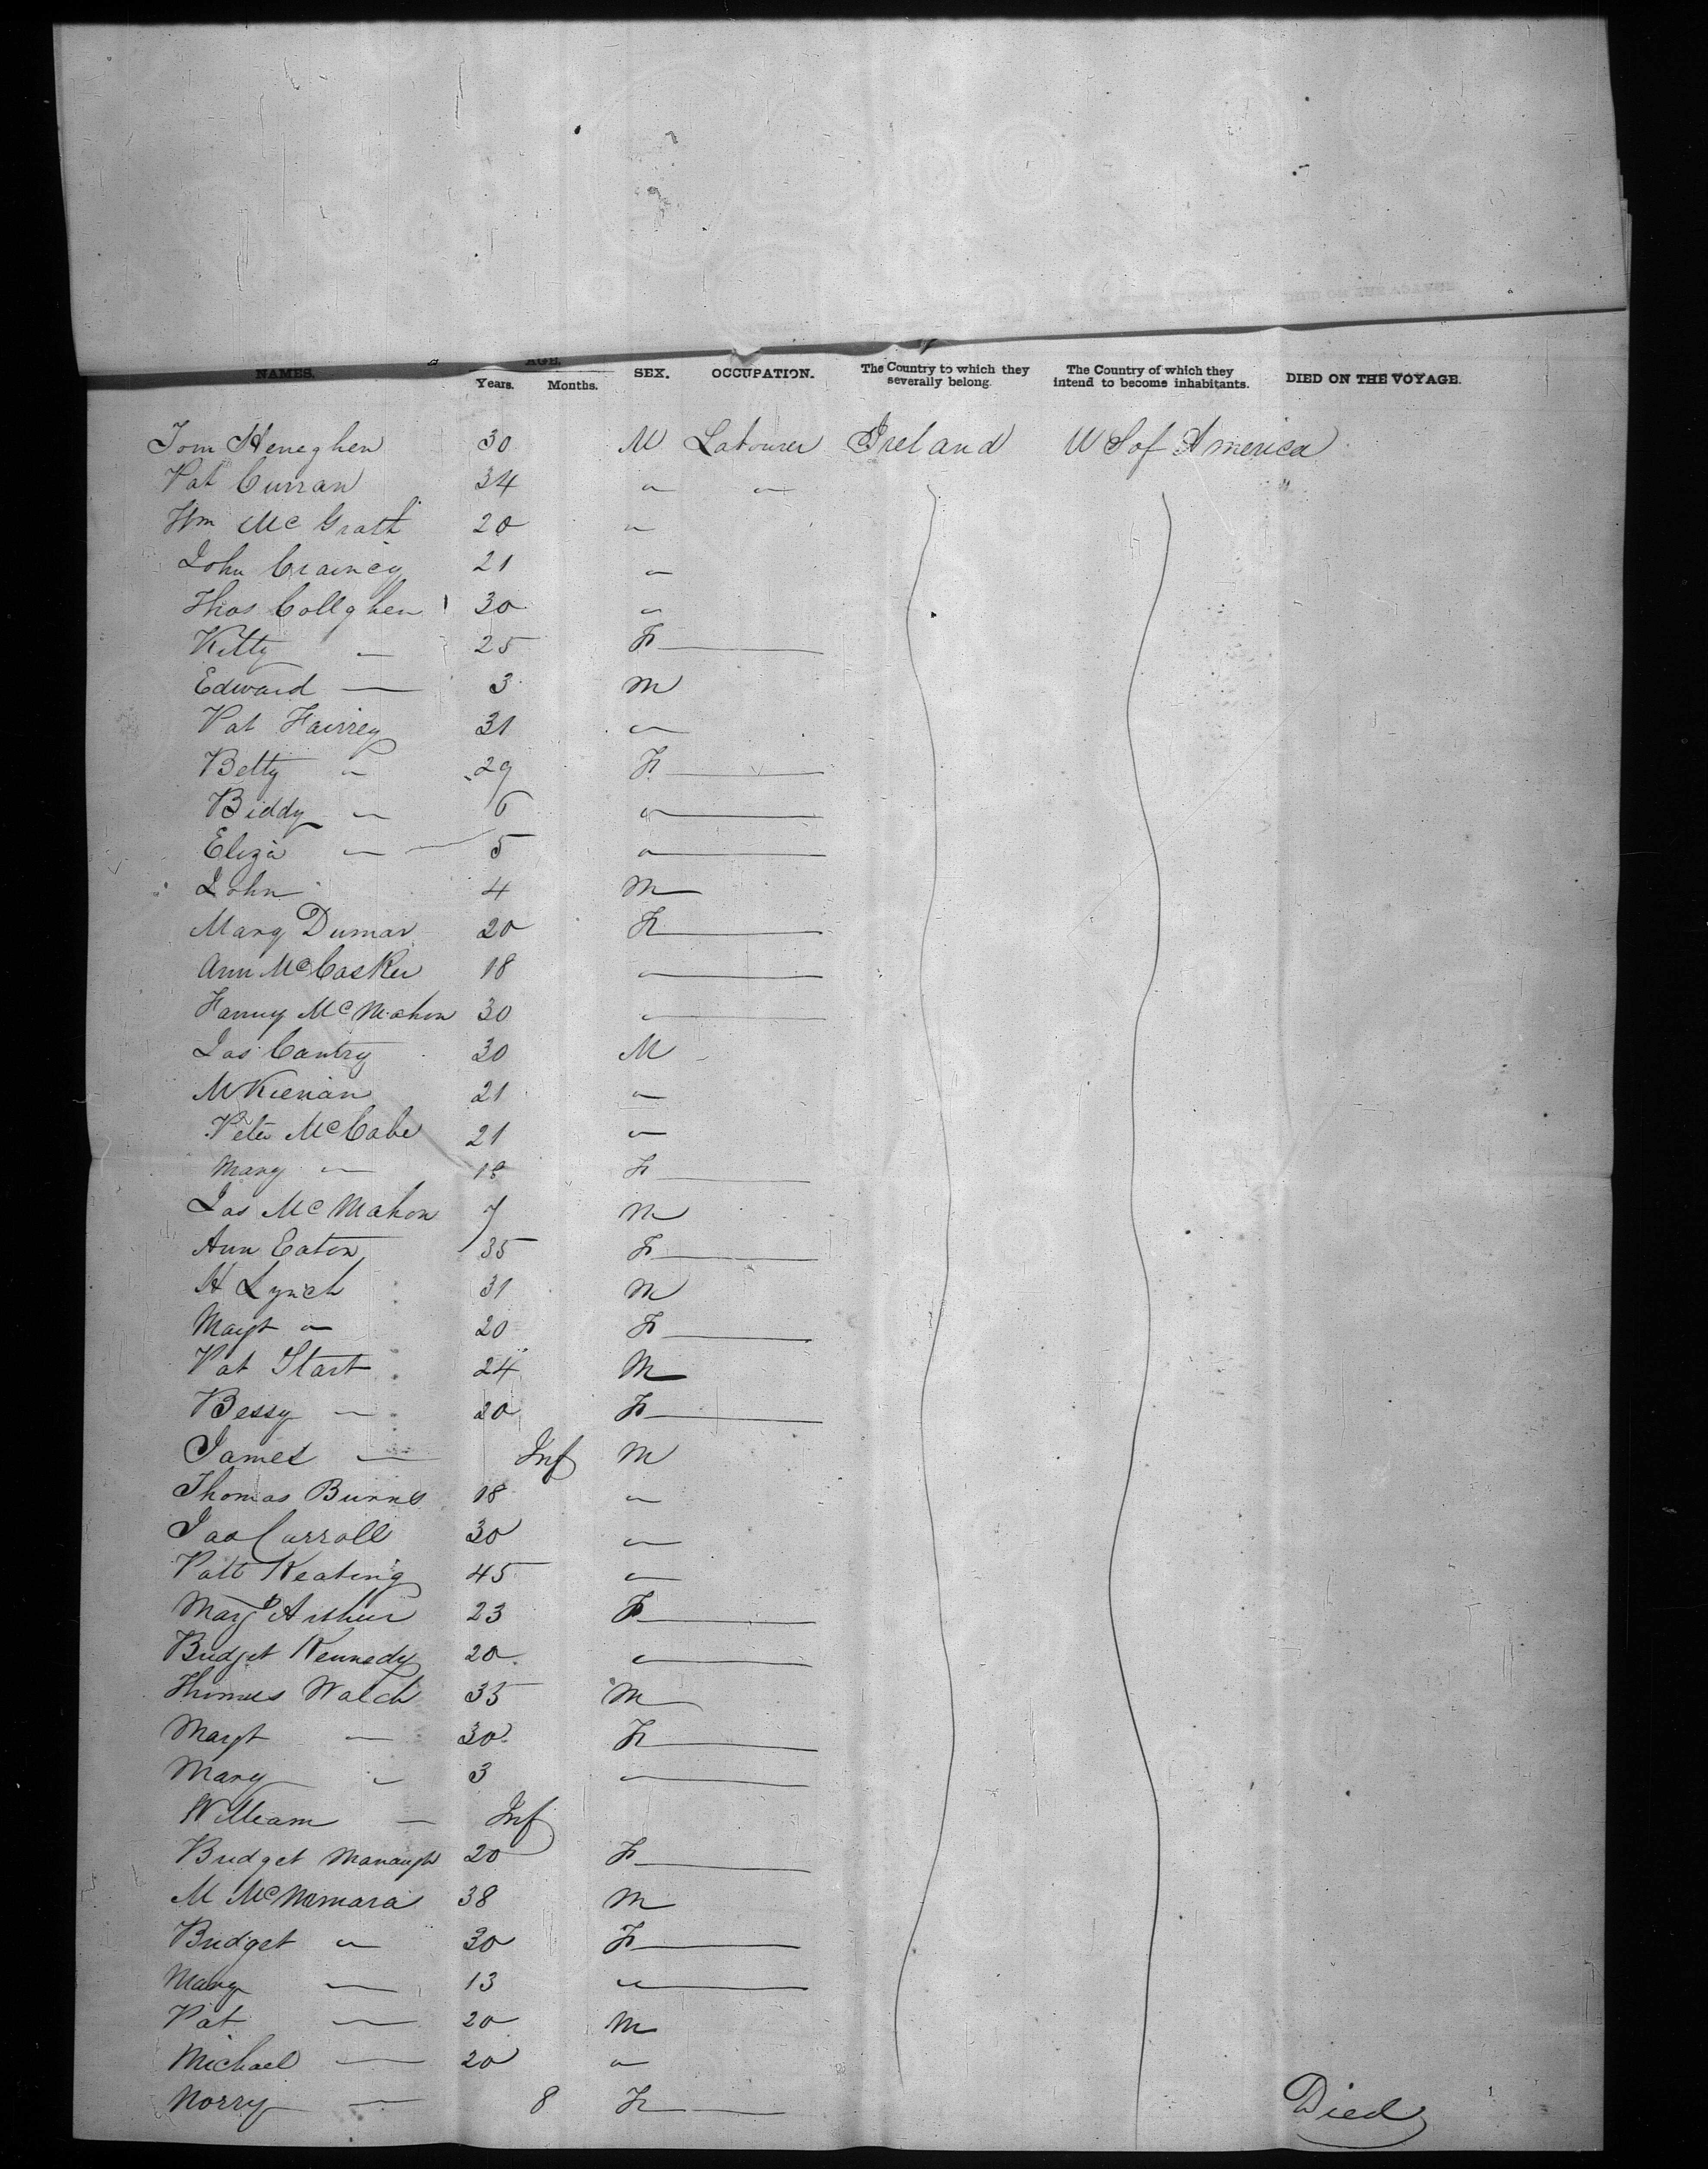 NAMES. AGE. Years. Months. SEX. OCCUPATION. The Country to which they severally belong. The Country of which they intend to become inhabitants. DIED ON THE VOYAGE.
Tom Heneghen 30 M Labourer Ireland U S of America
Pat Curran 34 " "
Wm McGrath 20 "
John Crainey 21 "
Thos Collghen 30 "
Kitty — 25 F —
Edward — 3 M
Pat Fairrey 31 "
Betty " 29 F —
Biddy " 6 " —
Eliza " 5 " —
John 4 M —
Mary Dumar 20 F —
Ann McCasker 18 " —
Fanny McMahon 30 " —
Jas Cantry 30 M
M Kiernan 21 "
Peter McCabe 21 "
Mary " 18 F —
Jas McMahon 7 M
Ann Eaton 35 F —
H Lynch 31 M
Margt " 20 F —
Pat Start 24 M
Bessy — 20 F —
James — Inf M
Thomas Burns 18 "
Jas Carroll 30 "
Patt Keating 45 "
Margt Arthur 23 F —
Bridget Kennedy 20 " —
Thomas Walch 35 M
Margt — 30 F —
Mary " 3 " —
William — Inf
Bridget 20 F —
M McNamara 38 M
Bridget " 30 F —
Mary — 13 " —
Pat — 20 M
Michael — 20 "
Norry — 8 F — Died